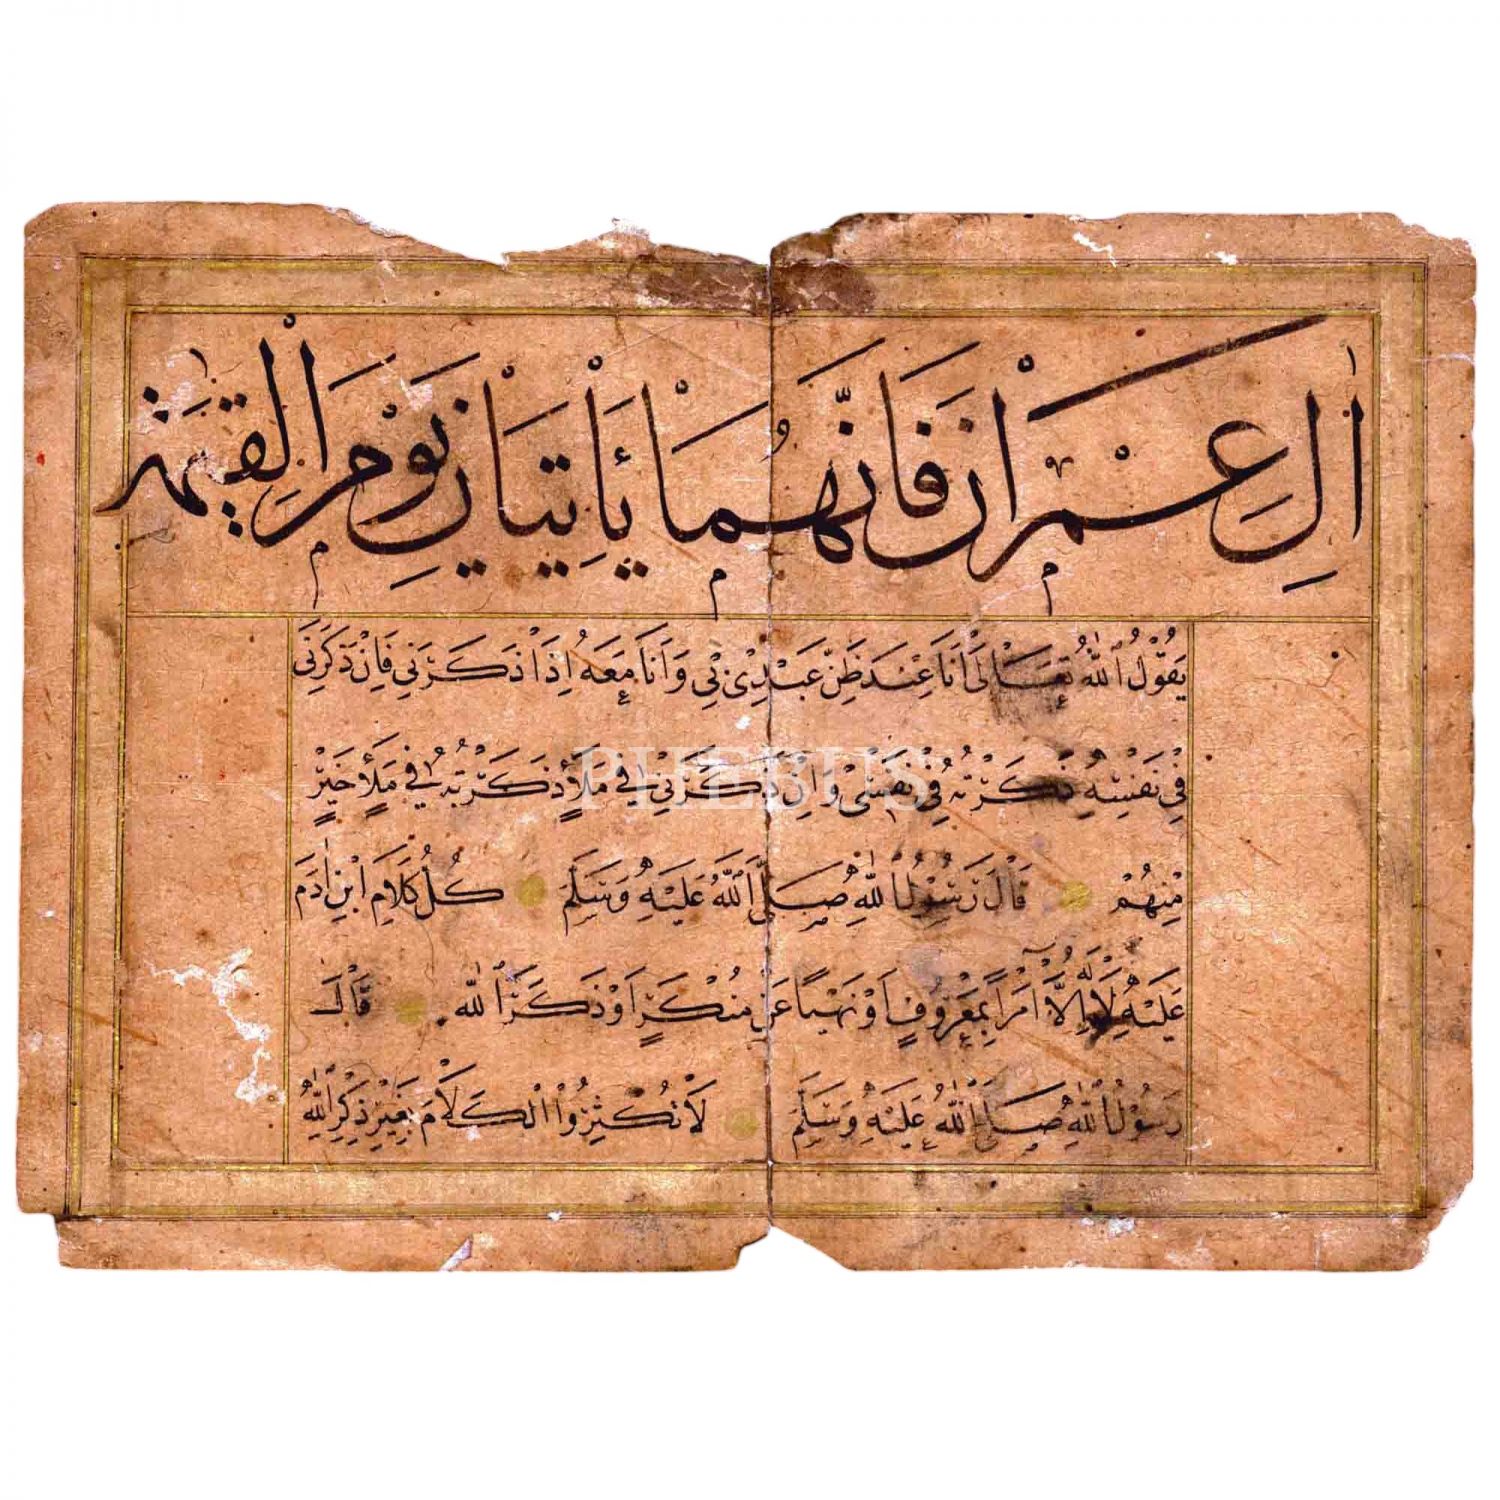 اٰلِ عِمْرَانَ فَاِنَّهُمَا يَأْتِيَانِ يَوْمَ الْقِيٰمَةِ
يَقُولُ اللّٰهُ تَعَالٰى اَنَا عِنْدَ ظَنِّ عَبْدِى بِى وَاَنَا مَعَهُ اِذَا ذَكَرَنِى فَاِنْ ذَكَرَنِى
فِى نَفْسِهِ ذَكَرْتُهُ فِى نَفْسِى وَاِنْ ذَكَرَنِى فِى مَلَأٍ ذَكَرْتُهُ فِى مَلَأٍ خَيْرٍ
مِنْهُمْ قَالَ رَسُولُ اللّٰهِ صَلَّى اللّٰهُ عَلَيْهِ وَسَلَّمَ كُلُّ كَلَامِ ابْنِ اٰدَمَ
عَلَيْهِ لَا لَهُ اِلَّا اَمْرًا بِمَعْرُوفٍ اَوْ نَهْيًا عَنْ مُنْكَرٍ اَوْ ذِكْرَ اللّٰه قَالَ
رَسُولُ اللّٰهِ صَلَّى اللّٰهُ عَلَيْهِ وَسَلَّمَ لَا تُكْثِرُوا الْكَلَامَ بِغَيْرِ ذِكْرِ اللّٰهِ
PHEBUS